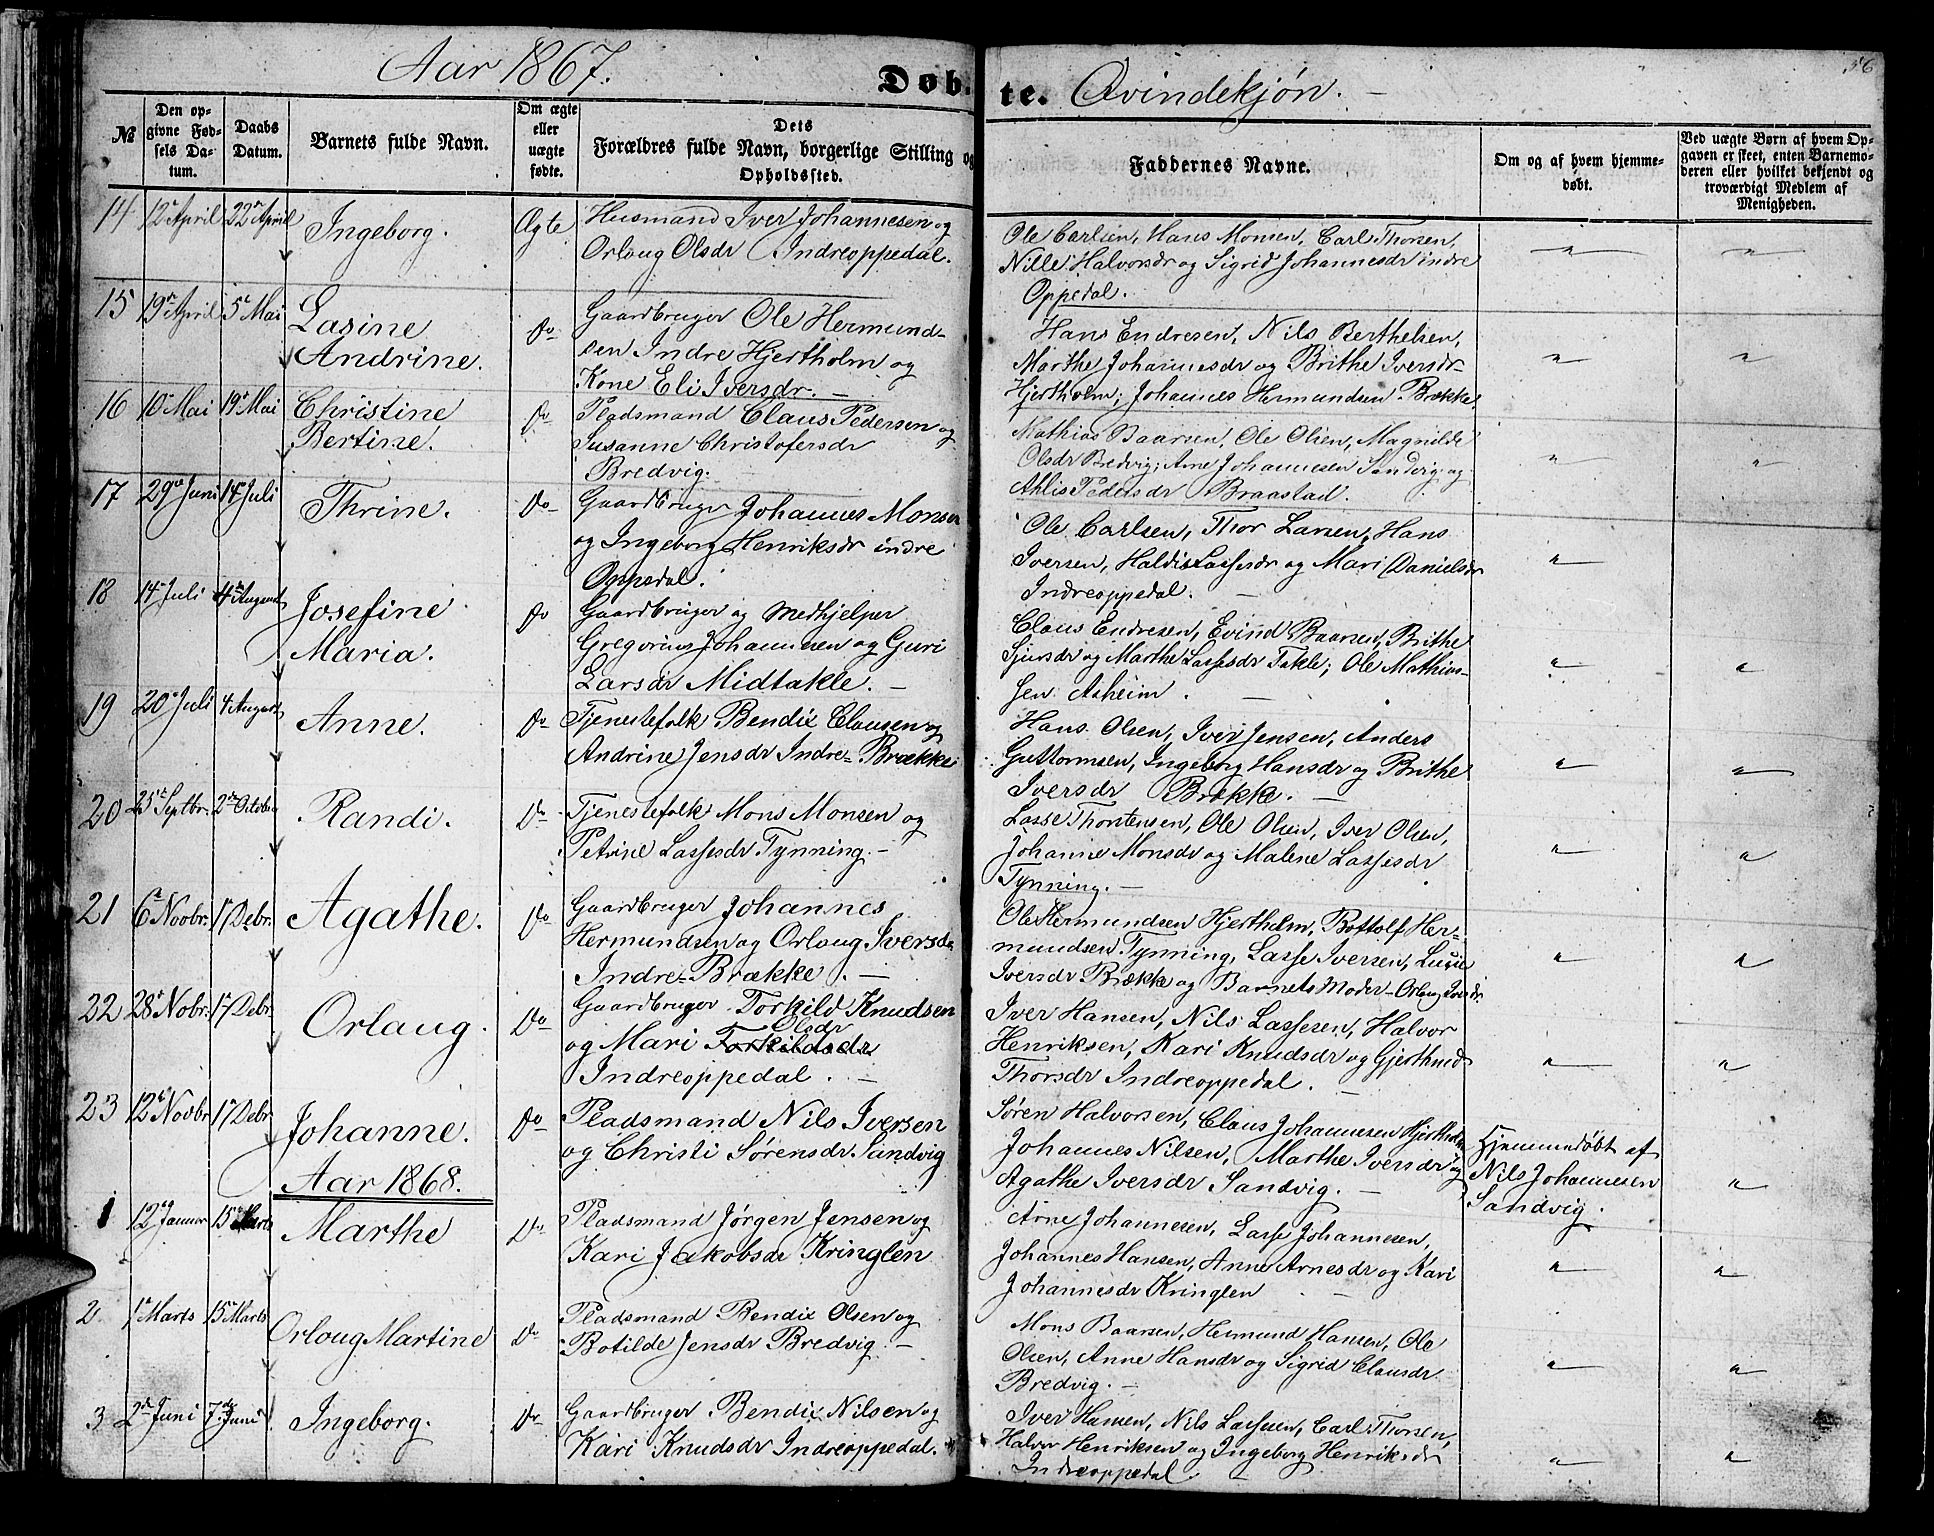 Aar 1867.
Døb-
te. Qvindekjøn. -
56
№
Den op-
givne Fød-
sels Da-
tum.
Daabs
Datum.
Barnets fulde Navn.
Om ægte
eller
uægte
fødte.
Dets
Forældres fulde Navn, borgerlige Stilling og
Opholdssted.
Faddernes Navne.
Om og af hvem hjemme-
døbt.
Ved uægte Børn af hvem Op-
gaven er skeet, enten Barnemo-
deren eller hvilket bekjendt og
troværdigt Medlem af
Menigheden.
14 12te April 22de April Ingeborg. Ægte
Husmand Iver Johannesen og
Orloug Olsdr Indreoppedal.
Ole Carlsen, Hans Monsen, Carl Thorsen,
Nille Halvorsdr og Sigrid Johannesdr indre
Oppedal.
" "
15 19de April 5te Mai Lasine
Andrine. Do
Gaardbruger Ole Hermund-
sen Indre Hjertholm og
Kone Eli Iversdr. -
Hans Endresen, Nils Berthelsen,
Marthe Johannesdr og Brithe Iversdr
Hjertholm; Johannes Hermundsen Brække.
" "
16 10de Mai 19de Mai Christine
Bertine. Do
Pladsmand Claus Pedersen og
Susanne Christofersdr
Bredvig.
Mathias Baarsen, Ole Olsen, Magnilde
Olsdr Bredvig; Arne Johannesen Sandvig og
Ahlis Pedersdr Braastad.
" "
17 29de Juni 14de Juli Thrine. Do
Gaardbruger Johannes Monsen
og Ingeborg Henriksdr indre
Oppedal.
Ole Carlsen, Thor Larsen, Hans
Iversen, Haldis Lassesdr og Mari Danielsdr
Indreoppedal. -
"
18 14de Juli 4de August Josefine
Maria. Do
Gaardbruger og Medhjelper
Gregorius Johannesen og Guri
Larsdr Midtakle. -
Claus Endresen, Evind Baarsen, Brithe
Sjursdr og Marthe Lassesdr Takle; Ole Mathias-
sen Asheim. -
" "
19 20de Juli 4 August Anne. Do
Tjenestefolk Bendix Clausen og
Andrine Jensdr Indre-Brække
Hans Olsen, Iver Jensen, Anders
Guttormsen, Ingeborg Hansdr og Brithe
Iversdr Brække. -
" "
20 25de Septbr. 2den October Randi. Do
Tjenestefolk Mons Monsen og
Petrine Lassesdr Tynning. -
Lasse Thorstensen, Ole Olsen, Iver Olsen,
Johanne Monsdr og Malene Lassesdr
Tynning. -
" "
21 6te Novbr. 1ste Debr. Agathe. Do
Gaardbruger Johannes
Hermundsen og Orloug Iversdr
Indre-Brække. -
Ole Hermundsen Hjertholm, Bottolf Her-
mundsen Tynning, Lasse Iversen, Lucie
Iversdr Brække og Barnets Moder - Orloug Iversdr
" "
22 28de Nobr. 17de Debr. Orlaug. Do
Gaardbruger Torkild Knudsen
Olsdr
og Mari Torkildsdr
Indreoppedal. -
Iver Hansen, Nils Lassesen, Halvor
Henriksen, Kari Knudsdr og Gjerthrud
Thorsdr Indreoppedal.
" "
23 12te Novbr 17 Debr. Johanne. Do
Pladsmand Nils Iversen
og Christi Sørensdr. Sandvig
Søren Halvorsen, Claus Johannesen Hjertholm
Johannes Nilsen, Marthe Iversdr og
Agathe Iversdr Sandvig. -
Hjemmedøbt af
Nils Johannesen
Sandvig.
"
Aar 1868.
1 12te Januar 15de Marts Marthe Do
Pladsmand Jørgen Jensen og
Kari Jakobsdr Kringlen
Arne Johannesen, Lasse Johannesen,
Johannes Hansen, Anne Arnesdr og Kari
Johannesdr Kringlen -
" "
2 1ste Marts 15de Marts Orloug Martine Do
Pladsmand Bendix Olsen og
Botilde Jensdr Bredvig. -
Mons Baarsen, Hermund Hansen, Ole
Olsen, Anne Hansdr og Sigrid Clausdr.
Bredvig. -
" "
3 2den Juni 7de Juni Ingeborg. Do
Gaardbruger Bendix Nilsen og
Kari Knudsdr Indreoppedal.
Iver Hansen, Nils Lassesen, Carl Thorsen,
Halvor Henriksen og Ingeborg Henriksdr
Indreoppedal -
" "